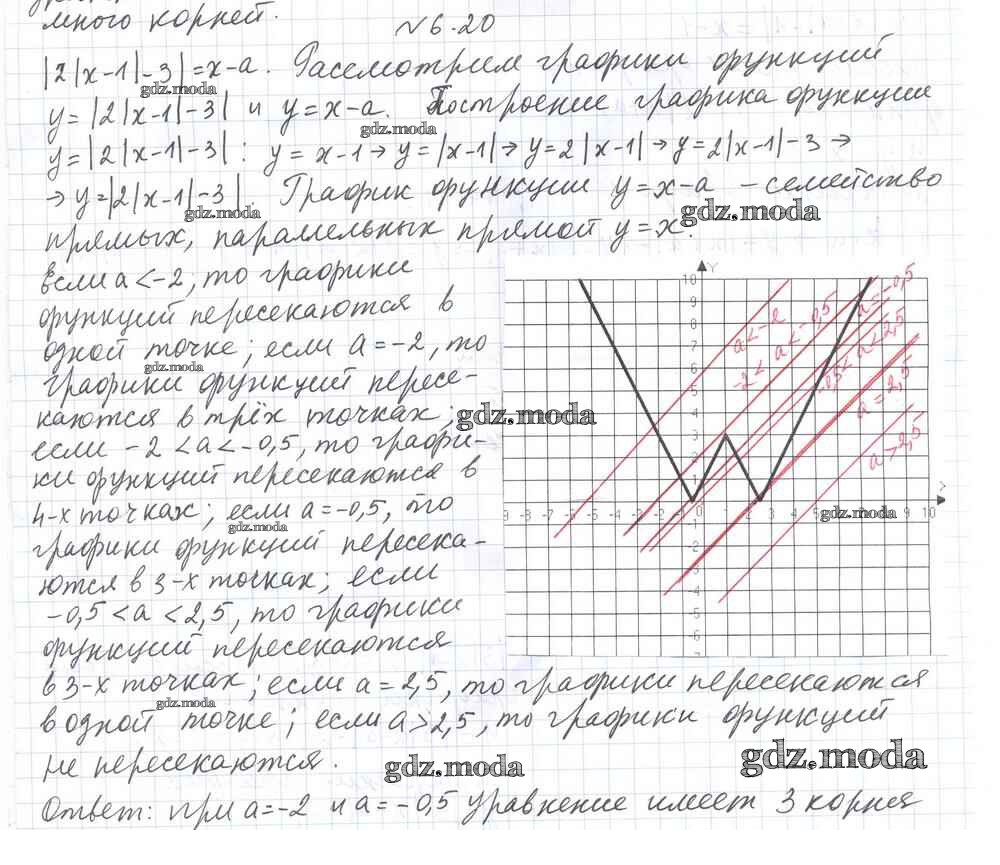 много корней.
№6.20
|2|x-1|-3|=x-a. Рассмотрим графики функций
gdz.moda
y=|2|x-1|-3| и y=x-a. Построение графика функции
gdz.moda
y=|2|x-1|-3|: y=x-1→y=|x-1|→y=2|x-1|→y=2|x-1|-3→
→y=|2|x-1|-3|. График функции y=x-a – семейство
gdz.moda
gdz.moda
прямых, параллельных прямой y=x.
Если a<-2, то графики
функций пересекаются в
одной точке; если a=-2, то
gdz.moda
графики функций пересе-
каются в трёх точках;
gdz.moda
если -2<a<-0,5, то графи-
ки функций пересекаются в
4-х точках; если a=-0,5, то
gdz.moda
графики функций пересека-
ются в 3-х точках; если
-0,5<a<2,5, то графики
функций пересекаются
в 3-х точках; если a=2,5, то графики пересекаются
gdz.moda
в одной точке; если a>2,5, то графики функций
не пересекаются.
gdz.moda
gdz.moda
Ответ: при a=-2 и a=-0,5 уравнение имеет 3 корня
a<-2
-2<a<-0,5
a=-0,5
-0,5<a<2,5
a=2,5
a>2,5
gdz.moda
Y
10
9
8
7
6
5
4
3
2
1
-9 -8 -7 -6 -5 -4 -3 -2 -1 0 1 2 3 4 5 6 7 8 9 10